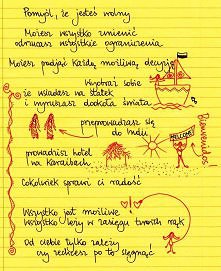 Pomyśl, że jesteś wolny
Możesz wszystko zmienić
odrzucasz wszystkie ograniczenia
Możesz podjąć każdą możliwą decyzję
Wyobraź sobie
że wsiadasz na statek
i wyruszasz dookoła świata
Bienvenidos
przeprowadzasz się
do Indii
WELCOME!
prowadzisz hotel
na Karaibach
Cokolwiek sprawi ci radość
Wszystko jest możliwe
wszystko leży w zasięgu twoich rąk
Od ciebie tylko zależy
czy zechcesz po to sięgnąć